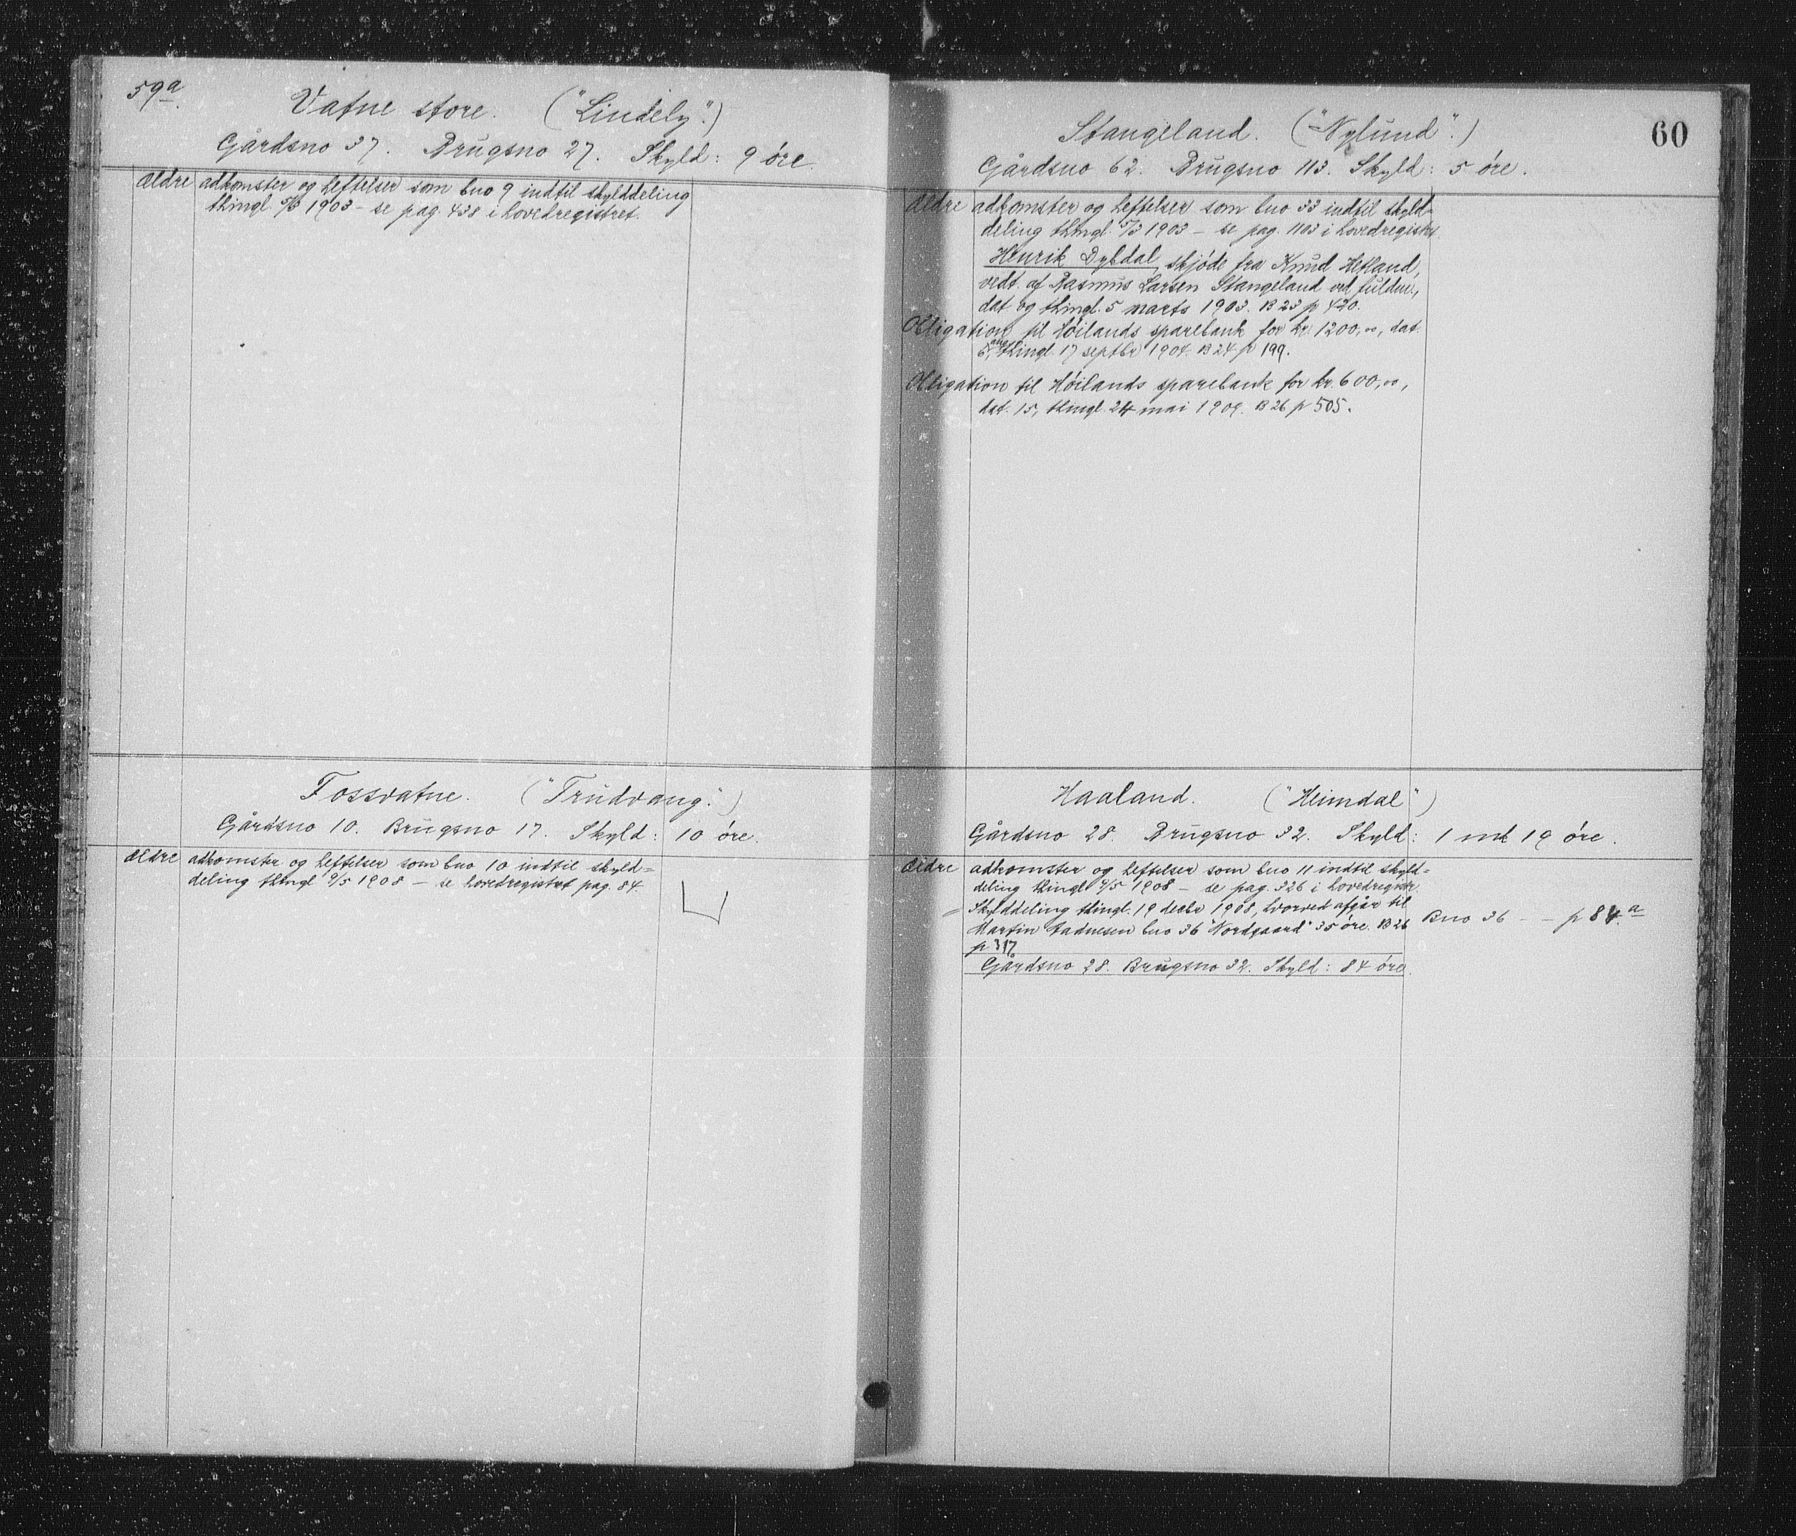 59a.
Vatne store. ("Lindely".)
Gårdsno 37. Brugsno 27. Skyld: 9 øre
Ældre adkomster og heftelser som bno 9 indtil skylddeling
thingl. 5/3 1903 - se pag. 438 i hovedregistret.
Fossvatne. ("Trudvang".)
Gårdsno 10. Brugsno 17. Skyld: 10 øre.
Ældre adkomster og heftelser som bno 10 indtil skyld=
deling thingl 9/5 1908 - se hovedregistret pag. 84
60
Stangeland. ("Nylund".)
Gårdsno 62. Brugsno 113. Skyld: 5 øre.
Ældre adkomster og heftelser som bno 33 indtil skyld=
deling thingl. 5/3 1903 - se pag. 1103 i hovedregistr.
Henrik Dybdal, skjøde fra Knud Hetland,
vedt. af Rasmus Larsen Stangeland ved fuldm.,
dat og thingl. 5 marts 1903. B 23 p 420.
Obligation til Høilands sparebank for kr. 1200,00, dat.
6, thingl. 17 septbr 1904. B 24 p 199.
Obligation til Høilands sparebank for kr. 600,00,
dat. 15, thingl. 24 mai 1909. B 26 p 505.
Haaland. ("Heimdal")
Gårdsno 28. Brugsno 32. Skyld: 1 mk 19 øre.
Ældre adkomster og heftelser som bno 11 indtil skyld=
deling thingl 9/5 1908 - se pag. 326 i hovedregistr.
= Skylddeling thingl. 19 decbr 1908, hvorved afgår til
Martin bno 36 "Nordgaard" 35 øre. B 26 Bno 36 - - p 84a
p 317.
Gårdsno 28. Brugsno 32. Skyld: 84 øre.